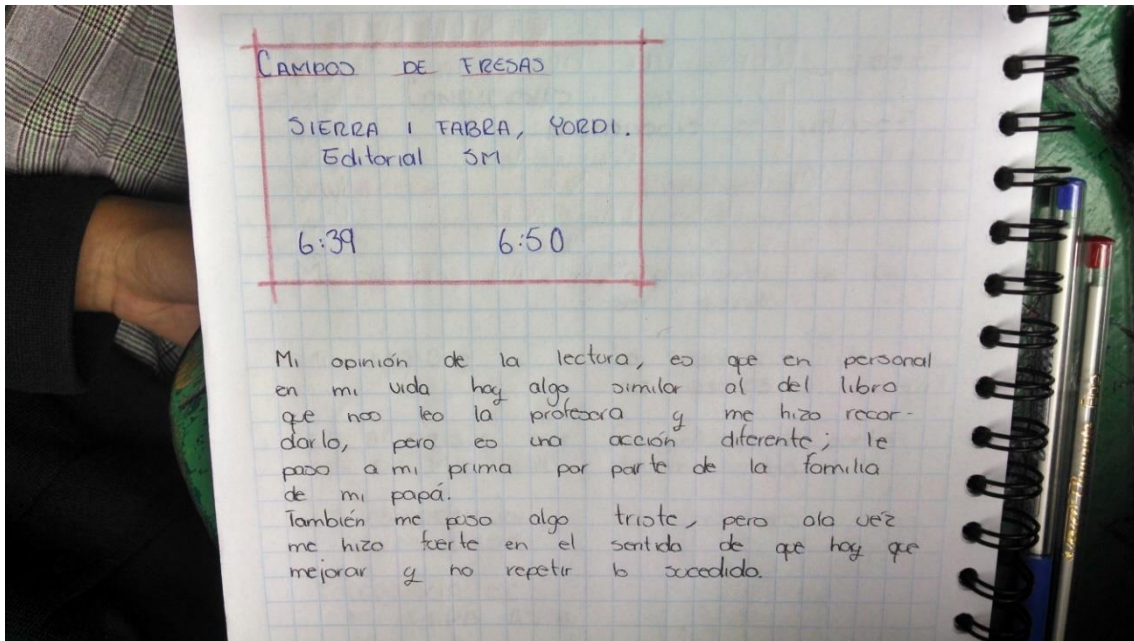 CAMPOS DE FRESAS
SIERRA I FABRA, YORDI.
Editorial SM
6:39 6:50
Mi opinión de la lectura, es que en personal
en mi vida hay algo similar al del libro
que nos leo la profesora y me hizo recor-
darlo, pero es una acción diferente; le
paso a mi prima por parte de la familia
de mi papá.
También me puso algo triste, pero ala vez
me hizo fuerte en el sentido de que hay que
mejorar y no repetir lo sucedido.